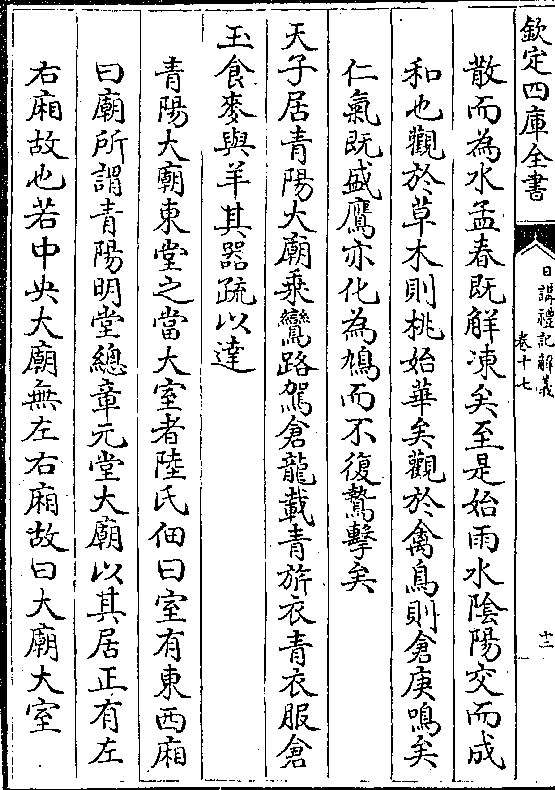 欽定四庫全書
日講禮記解義
卷十七
十二
散而為水孟春既解凍矣至是始雨水陰陽交而成
和也觀於草木則桃始華矣觀於禽鳥則倉庚鳴矣
仁氣既盛鷹亦化為鳩而不復鷙擊矣
天子居青陽大廟乗鸞路駕倉龍載青旂衣青衣服倉
玉食麥與羊其器疏以達
青陽大廟東堂之當大室者陸氏佃曰室有東西廂
曰廟所謂青陽明堂總章元堂大廟以其居正有左
右廂故也若中央大廟無左右廂故曰大廟大室